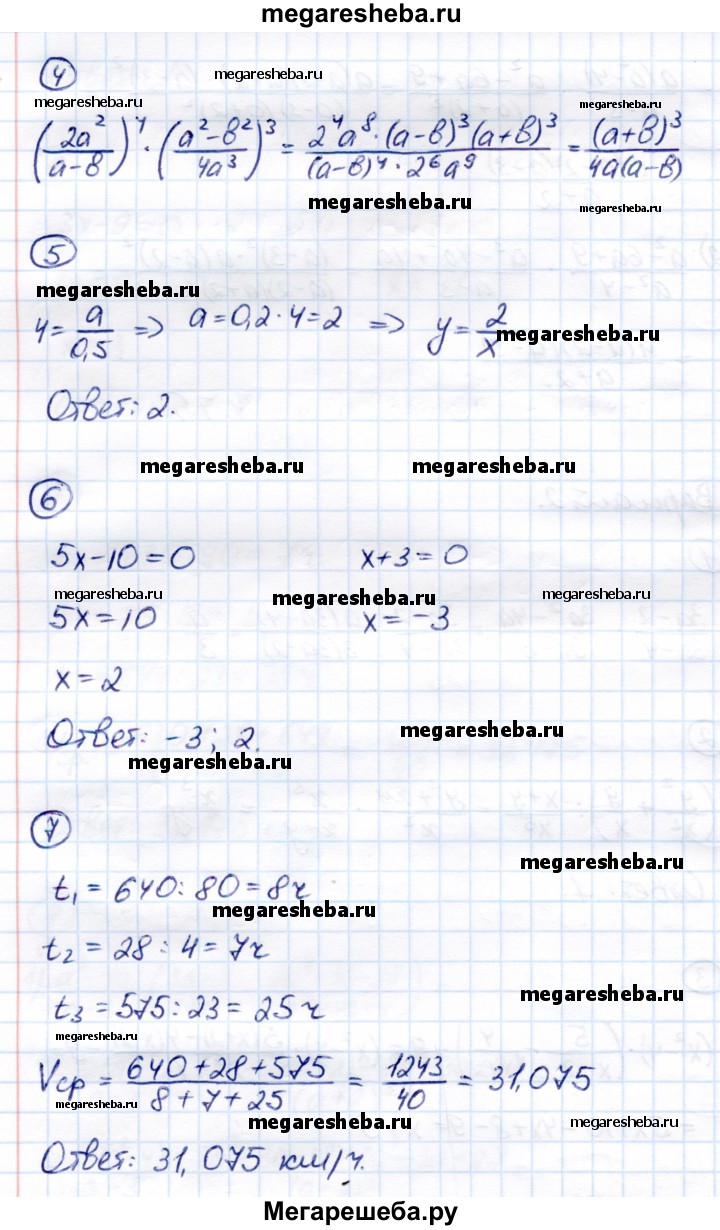 megaresheba.ru
4
megaresheba.ru megaresheba.ru
megaresheba.ru megaresheba.ru
(2a²/(a-в))⁴ · ((a²-в²)/4a³)³ = (2⁴a⁸ · (a-в)³(a+в)³)/((a-в)⁴ · 2⁶a⁹) = (a+в)³/(4a(a-в))
megaresheba.ru megaresheba.ru
5
megaresheba.ru
4 = a/0,5 => a = 0,2 · 4 = 2 => y = 2/x
megaresheba.ru
Ответ: 2.
megaresheba.ru megaresheba.ru
6
5x-10=0 x+3=0
megaresheba.ru megaresheba.ru megaresheba.ru
5x=10 x=-3
x=2
Ответ: -3; 2.
megaresheba.ru
megaresheba.ru
7
megaresheba.ru
t₁ = 640 : 80 = 8 ч
megaresheba.ru
t₂ = 28 : 4 = 7 ч
t₃ = 575 : 23 = 25 ч
megaresheba.ru
megaresheba.ru
Vср = (640+28+575)/(8+7+25) = 1243/40 = 31,075
megaresheba.ru megaresheba.ru megaresheba.ru
Ответ: 31,075 км/ч.
Мегарешеба.ру